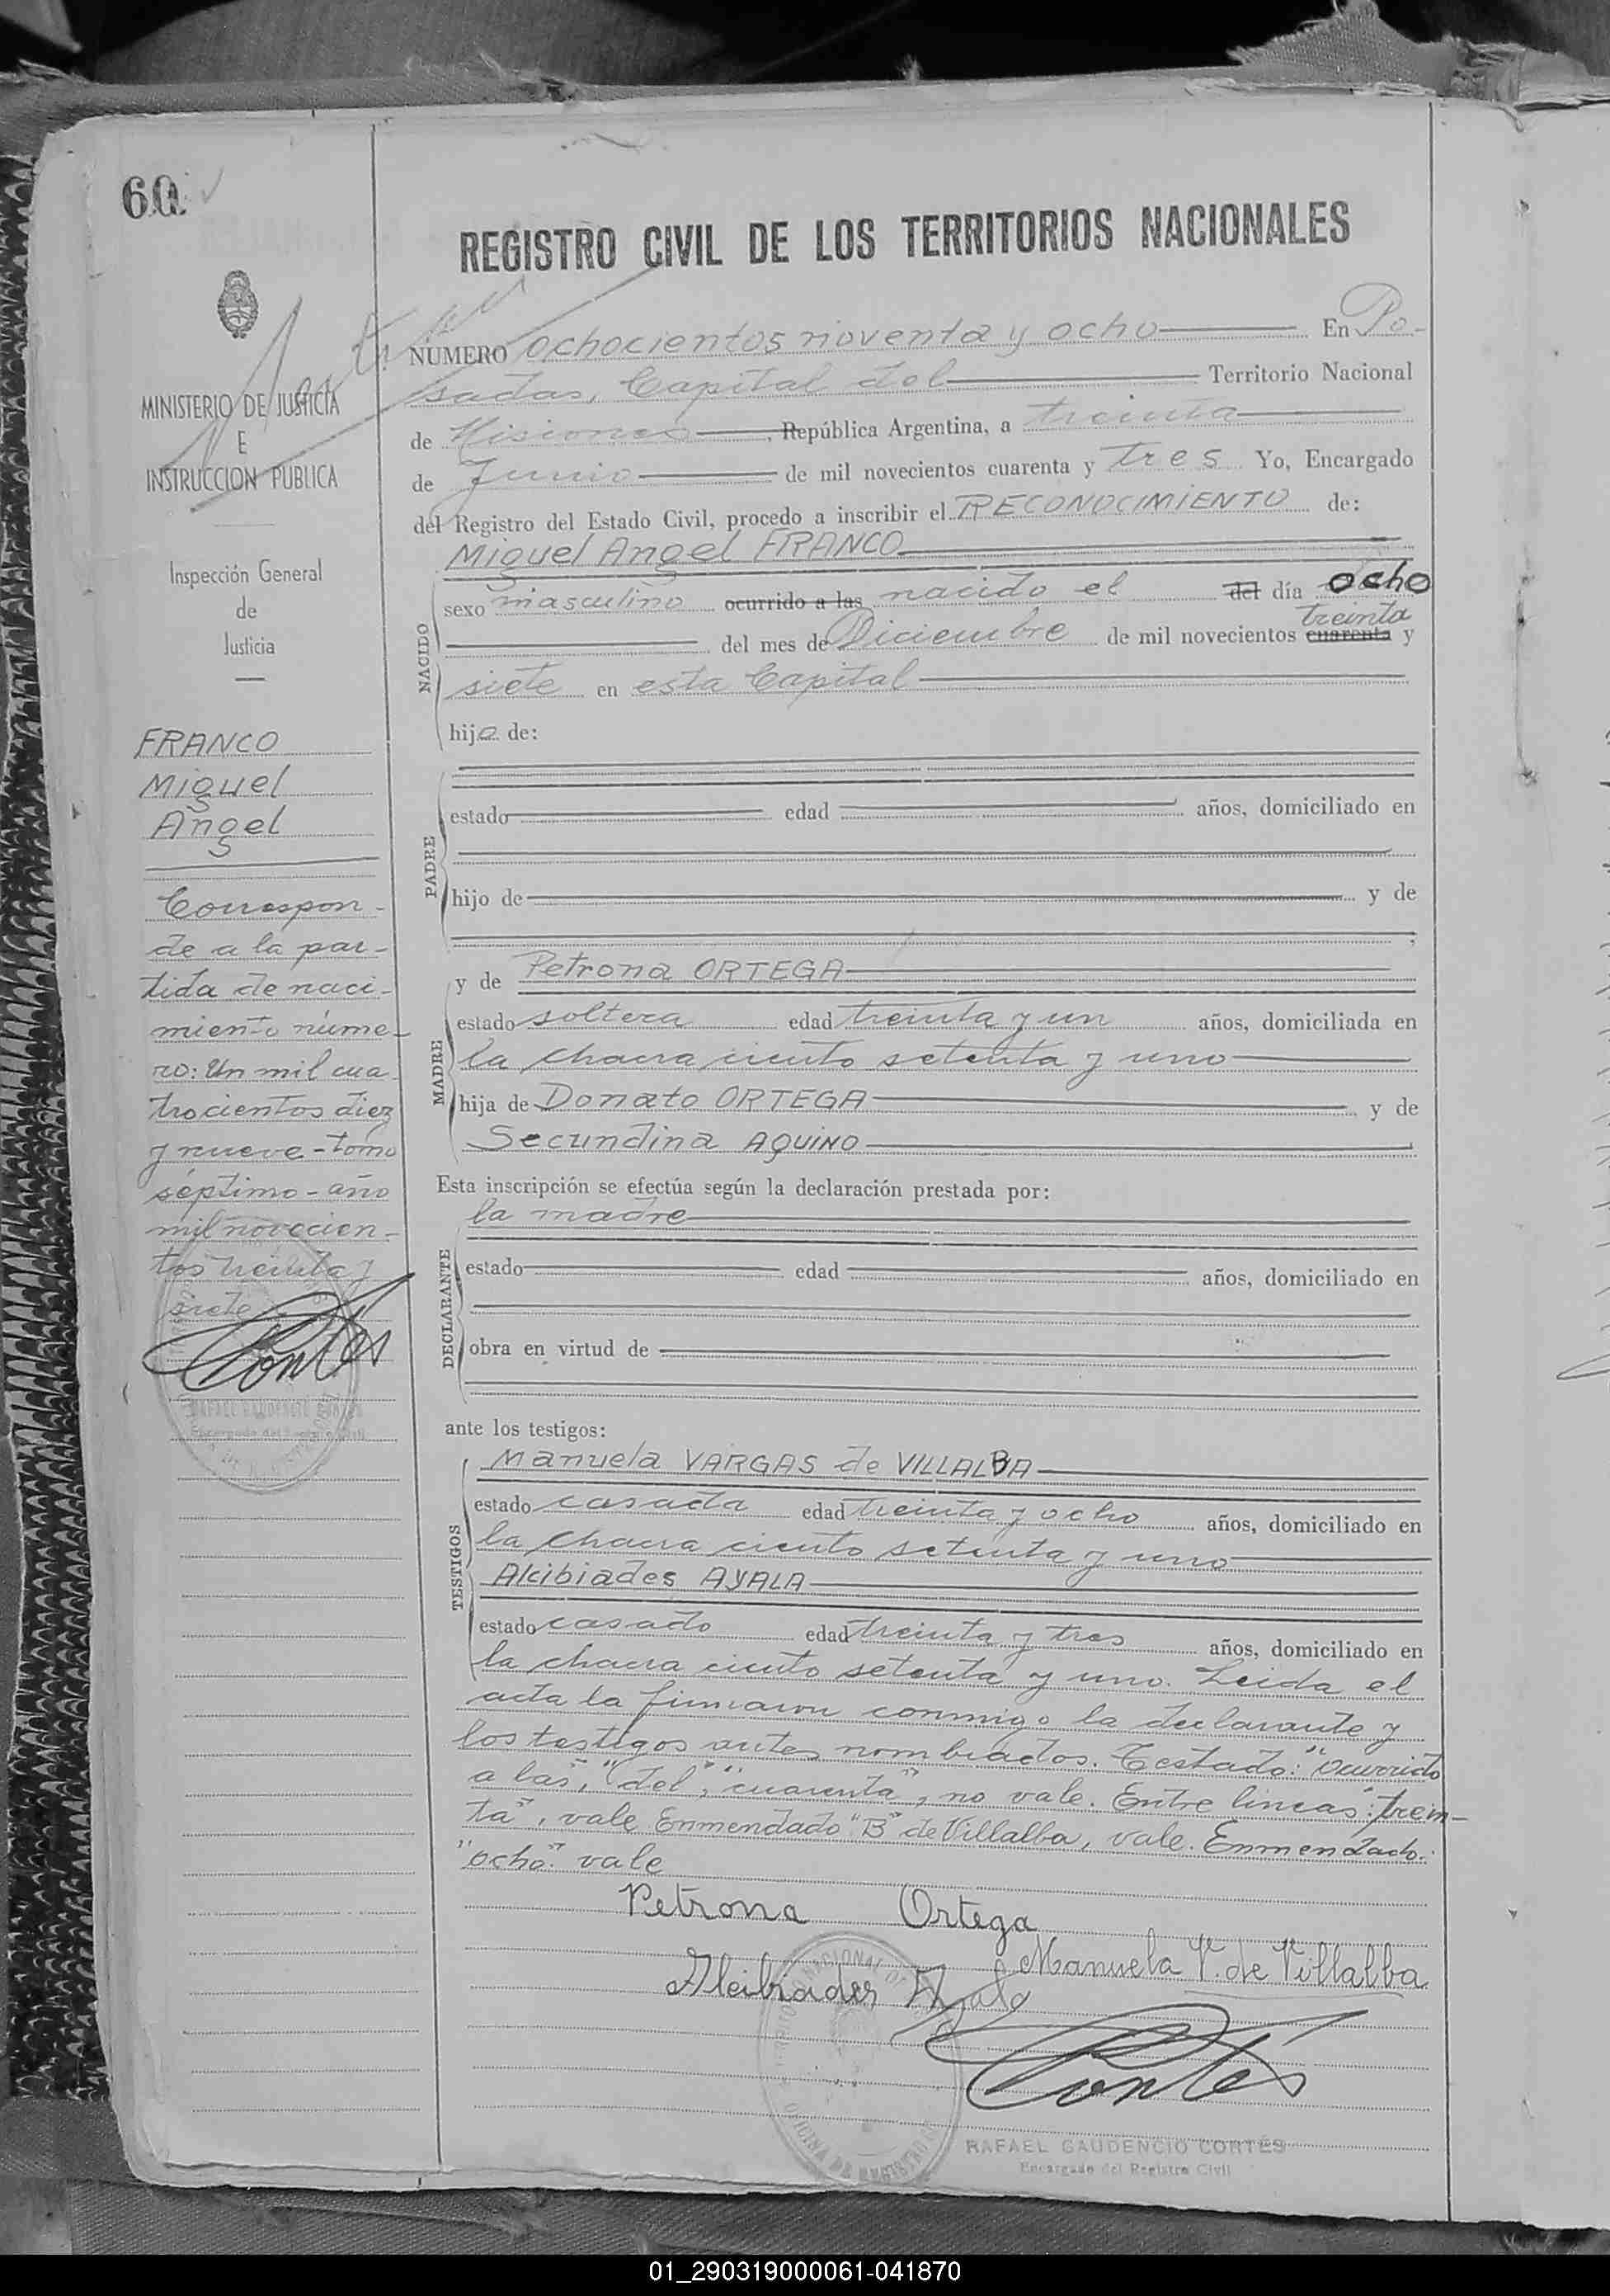 60
MINISTERIO DE JUSTICIA
E
INSTRUCCION PUBLICA
Inspección General
de
Justicia
FRANCO
Miguel
Angel
Correspon-
de a la par-
tida de naci-
miento núme-
ro: Un mil cua
trocientos diez
y nueve - tomo
séptimo - año
mil novecien-
tos treinta y
siete
Cortés
RAFAEL GAUDENCIO
Encargado del Registro Civil
REGISTRO CIVIL DE LOS TERRITORIOS NACIONALES
NUMERO ochocientos noventa y ocho En Po-
sadas, Capital del Territorio Nacional
de Misiones, República Argentina, a treinta
de Junio de mil novecientos cuarenta y tres Yo, Encargado
del Registro del Estado Civil, procedo a inscribir el RECONOCIMIENTO de:
Miguel Angel FRANCO
NACIDO
sexo masculino ocurrido a las nacido el del día ocho
treinta
del mes de Diciembre de mil novecientos cuarenta y
siete en esta Capital
hijo de:
PADRE
estado edad años, domiciliado en
hijo de y de
;
MADRE
y de Petrona ORTEGA
estado soltera edad treinta y un años, domiciliada en
la chacra ciento setenta y uno
hija de Donato ORTEGA y de
Secundina AQUINO
Esta inscripción se efectúa según la declaración prestada por:
DECLARANTE
la madre
estado edad años, domiciliado en
obra en virtud de
ante los testigos:
TESTIGOS
Manuela VARGAS de VILLALBA
estado casada edad treinta y ocho años, domiciliado en
la chacra ciento setenta y uno
Alcibiades AYALA
estado casado edad treinta y tres años, domiciliado en
la chacra ciento setenta y uno. Leida el
acta la firmaron conmigo la declarante y
los testigos antes nombrados. Testado: "ocurrido
a las", "del", "cuarenta", no vale. Entre líneas: "trein-
ta", vale. Enmendado "B" de Villalba, vale. Enmendado:
"ocho" vale
Petrona Ortega
Manuela V. de Villalba
Alcibiades Ayala
Cortés
OFICINA DE REGISTRO
RAFAEL GAUDENCIO CORTÉS
Encargado del Registro Civil
01_290319000061-041870